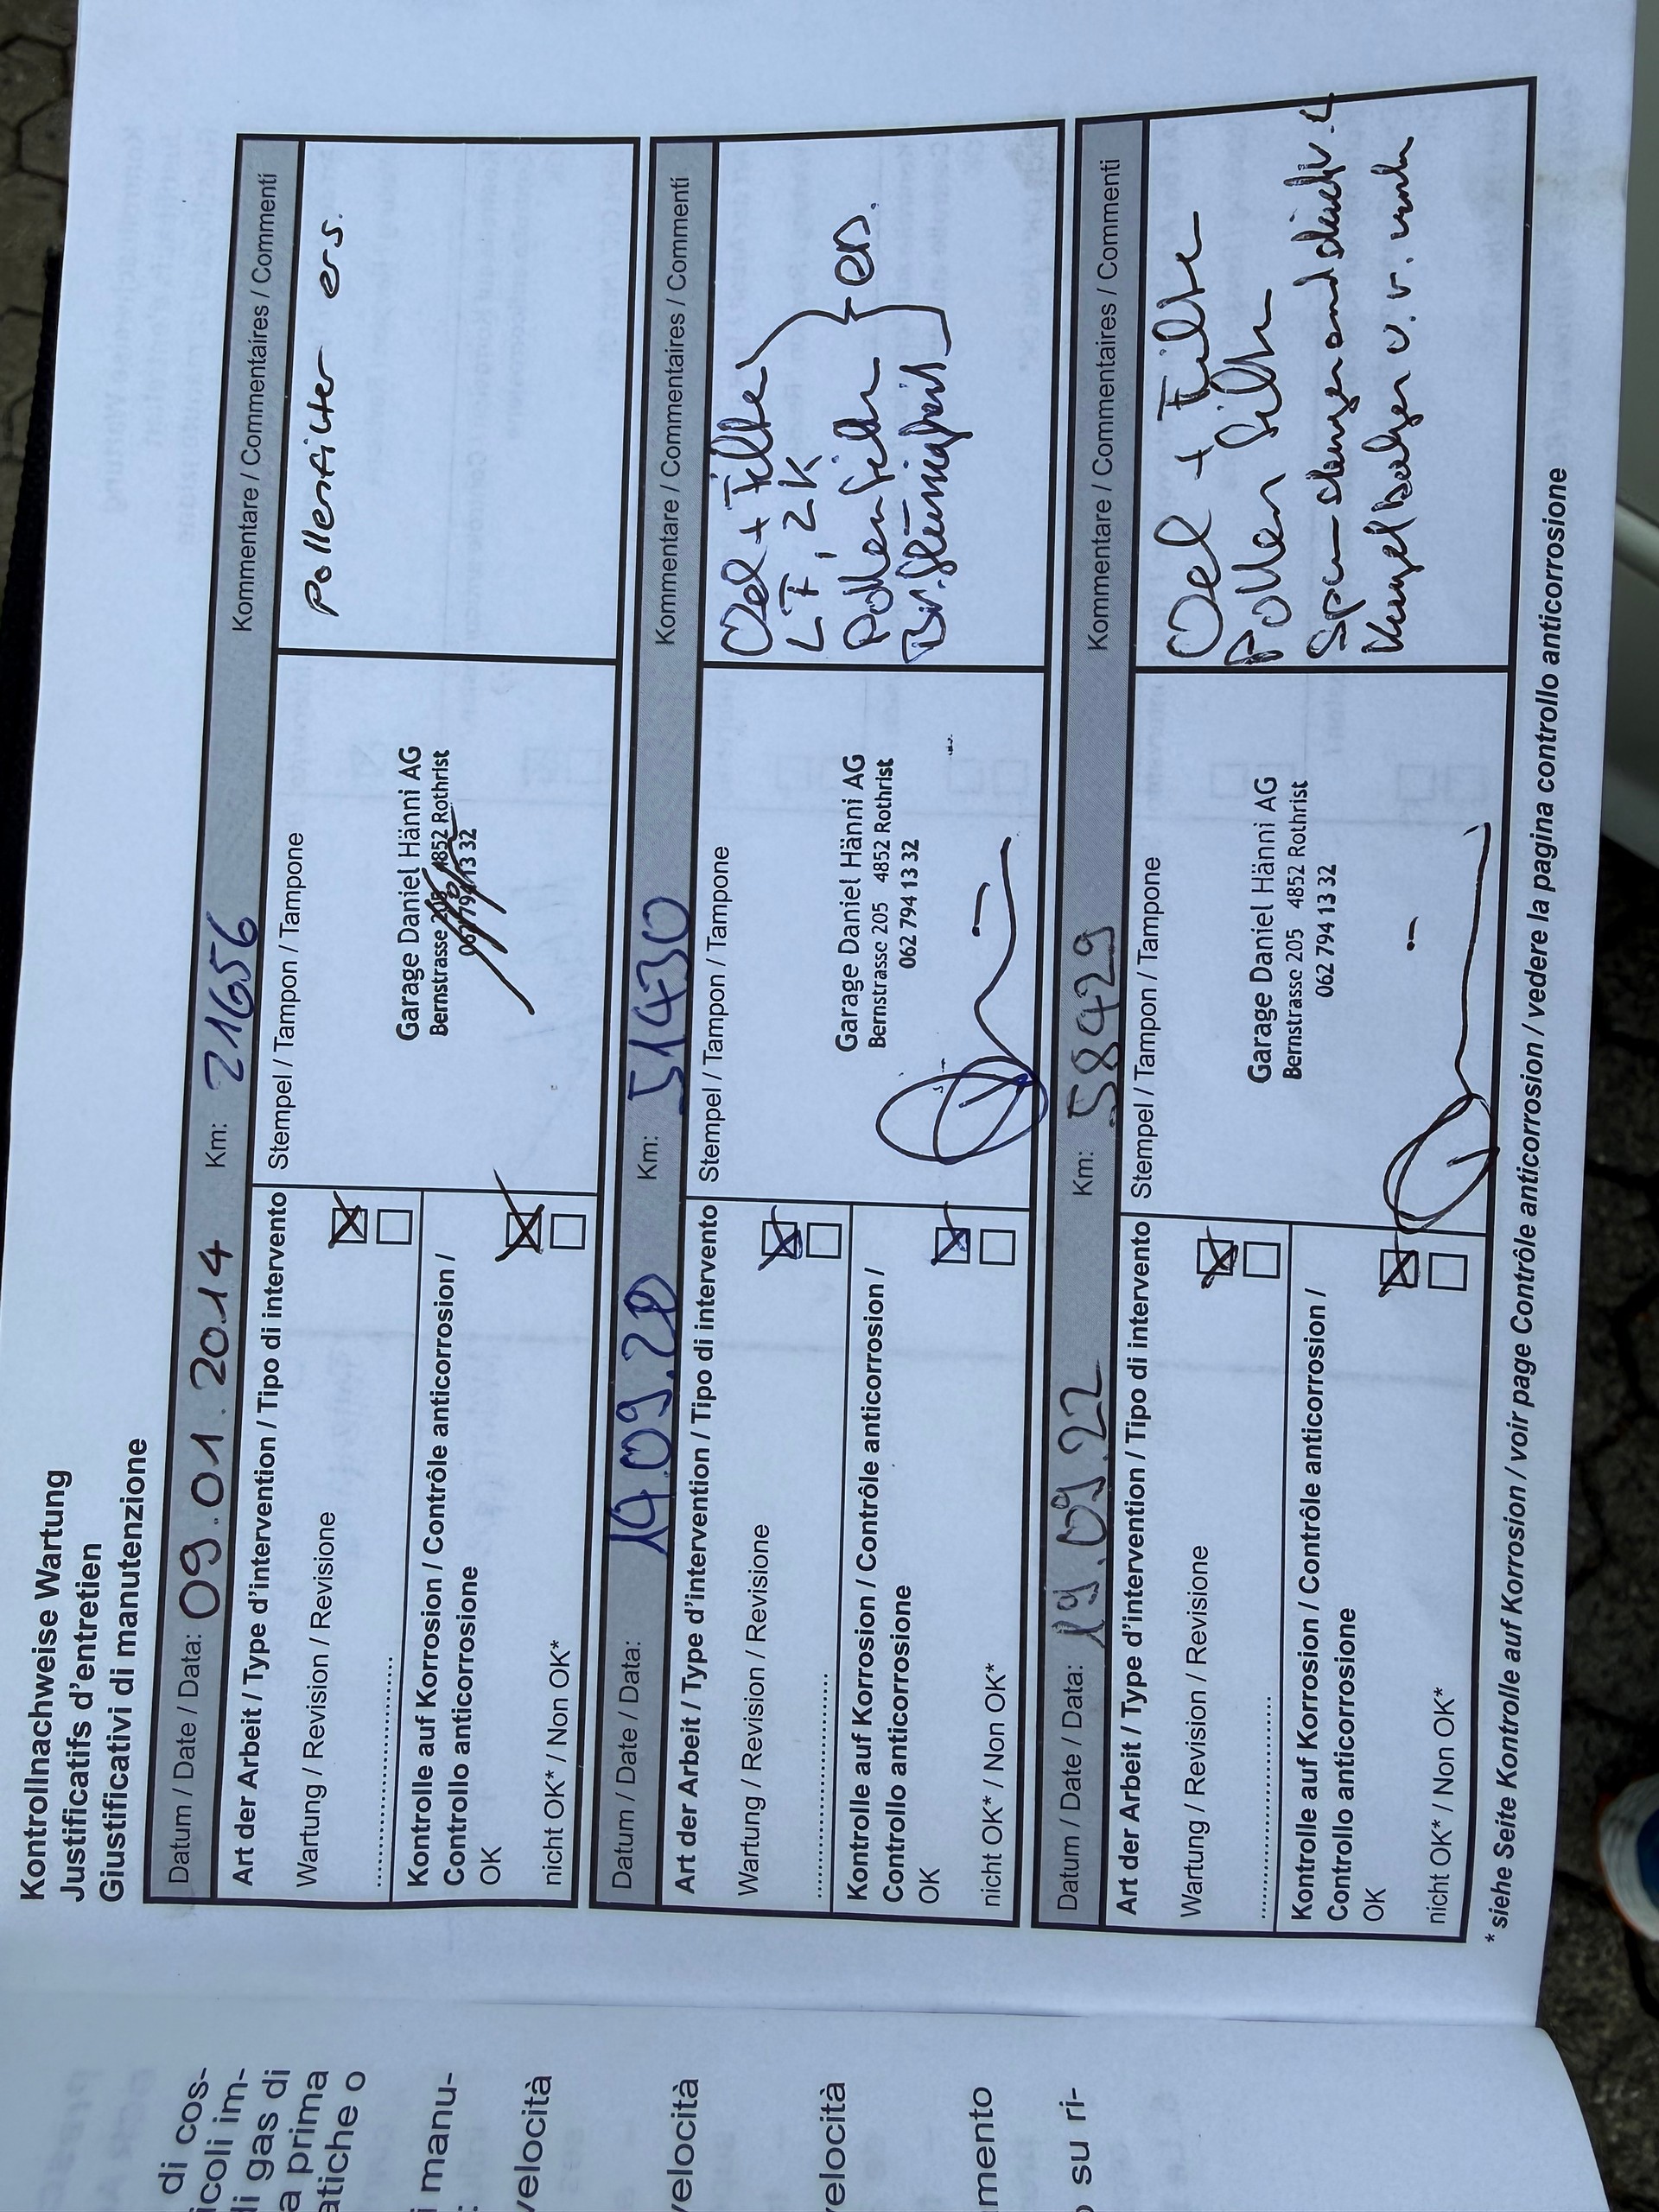 Kontrollnachweise Wartung
Justificatifs d'entretien
Giustificativi di manutenzione
Datum / Date / Data: 09.01.2014 Km: 21656 Kommentare / Commentaires / Commenti
Art der Arbeit / Type d'intervention / Tipo di intervento
Stempel / Tampon / Tampone
Pollenfilter ers.
Wartung / Revision / Revisione
....................................
Garage Daniel Hänni AG
Bernstrasse 205 4852 Rothrist
062 794 13 32
Kontrolle auf Korrosion / Contrôle anticorrosion /
Controllo anticorrosione
OK
nicht OK* / Non OK*
Datum / Date / Data: Km: 51430 Kommentare / Commentaires / Commenti
Art der Arbeit / Type d'intervention / Tipo di intervento
Stempel / Tampon / Tampone
Oel + Filter
LF, ZK
Pollenfilter
ers.
Wartung / Revision / Revisione
....................................
Garage Daniel Hänni AG
Bernstrasse 205 4852 Rothrist
062 794 13 32
Kontrolle auf Korrosion / Contrôle anticorrosion /
Controllo anticorrosione
OK
nicht OK* / Non OK*
Datum / Date / Data: 19.09.22 Km: 58429 Kommentare / Commentaires / Commenti
Art der Arbeit / Type d'intervention / Tipo di intervento
Stempel / Tampon / Tampone
Oel + Filter
Pollenfilter
Wartung / Revision / Revisione
....................................
Garage Daniel Hänni AG
Bernstrasse 205 4852 Rothrist
062 794 13 32
Kontrolle auf Korrosion / Contrôle anticorrosion /
Controllo anticorrosione
OK
nicht OK* / Non OK*
* siehe Seite Kontrolle auf Korrosion / voir page Contrôle anticorrosion / vedere la pagina controllo anticorrosione
di cos-
icoli im-
li gas di
a prima
atiche o
i manu-
:
velocità
velocità
elocità
mento
su ri-